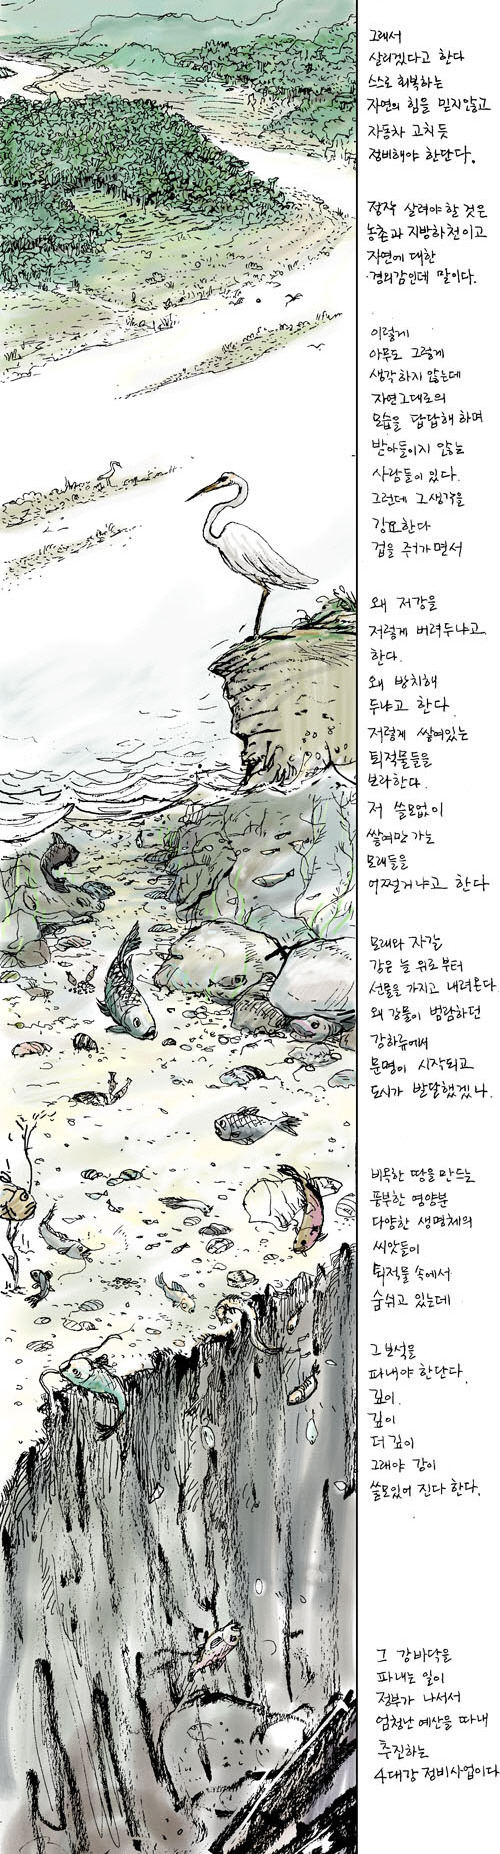 그래서
살리겠다고 한다
스스로 회복하는
자연의 힘을 믿지않고
자동차 고치듯
정비해야 한단다.
정작 살려야 할 것은
농촌과 지방하천이고
자연에 대한
경외감인데 말이다.
이렇게
아무도 그렇게
생각하지 않는데
자연그대로의
모습을 답답해 하며
받아들이지 않는
사람들이 있다.
그런데 그 생각을
강요한다
겁을 주어가면서
왜 저강을
저렇게 버려두냐고
한다.
왜 방치해
두냐고 한다
저렇게 쌓여있는
퇴적물들을
보라한다.
저 쓸모없이
쌓여만 가는
모래들을
어쩔거냐고 한다
모래와 자갈
강은 늘 위로부터
선물을 가지고 내려온다
왜 강물이 범람하던
강하류에서
문명이 시작되고
도시가 발달했겠나.
비옥한 땅을 만드는
풍부한 영양분
다양한 생명체의
씨앗들이
퇴적물 속에서
숨쉬고 있는데
그 보석을
파내야 한단다.
깊이.
깊이
더 깊이
그래야 강이
쓸모있어 진다 한다.
그 강바닥을
파내는 일이
정부가 나서서
엄청난 예산을 따내
추진하는
4대강 정비사업이다